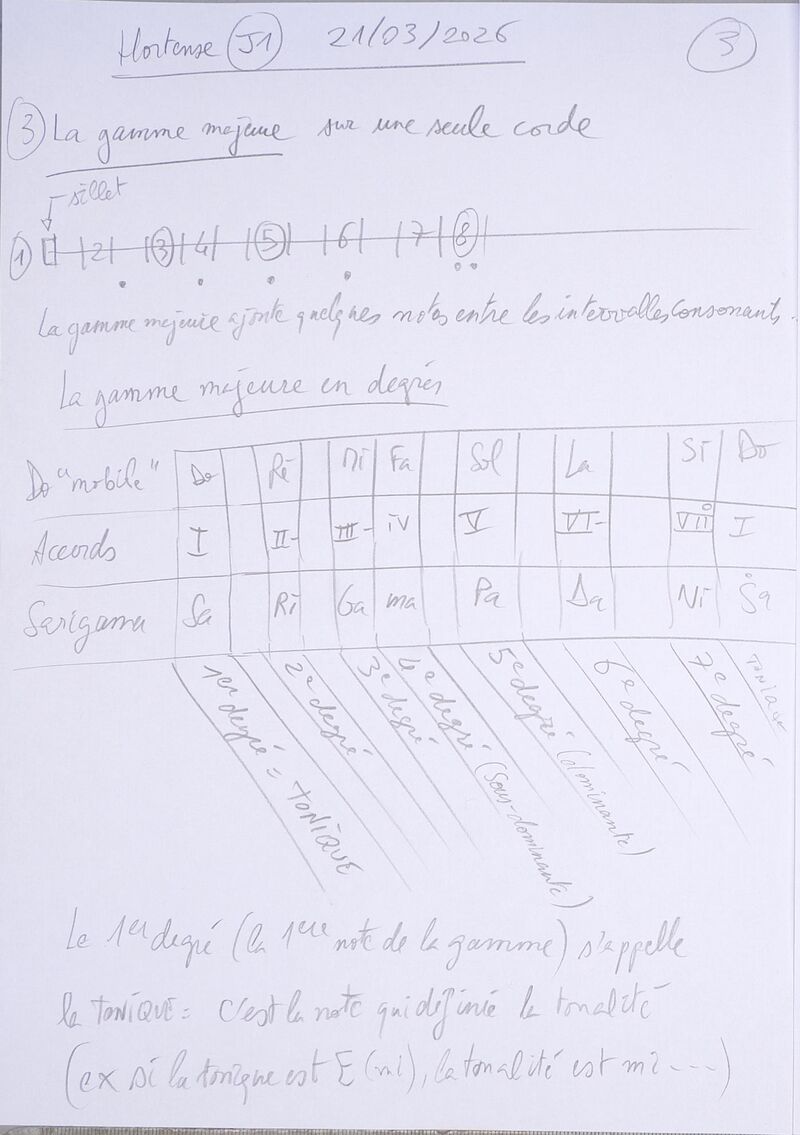 Hortense J1 21/03/2026 3
3 La gamme majeure sur une seule corde
sillet
1 2 3 4 5 6 7 8
La gamme majeure ajoute quelques notes entre les intervalles consonants.
La gamme majeure en degrés
Do "mobile" Do Ré Mi Fa Sol La Si Do
Accords I II- III- IV V VI- VII° I
Sarigama Sa Ri Ga ma Pa Da Ni Ṡa
1er degré = TONIQUE
2e degré
3e degré
4e degré (sous-dominante)
5e degré (dominante)
6e degré
7e degré
TONIQUE
Le 1er degré (la 1ere note de la gamme) s'appelle
la TONIQUE = c'est la note qui définie la tonalité
(ex si la tonique est E (mi), la tonalité est mi ----)